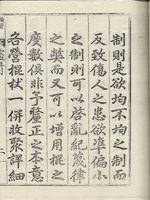 制則是欲均不均之制而
反致傷人之患欲準偏小
之制則可以啓亂紀蔑律
之獘而又可以增用棍之
度數俱非予釐正之本意
各營棍杖一併收聚詳細